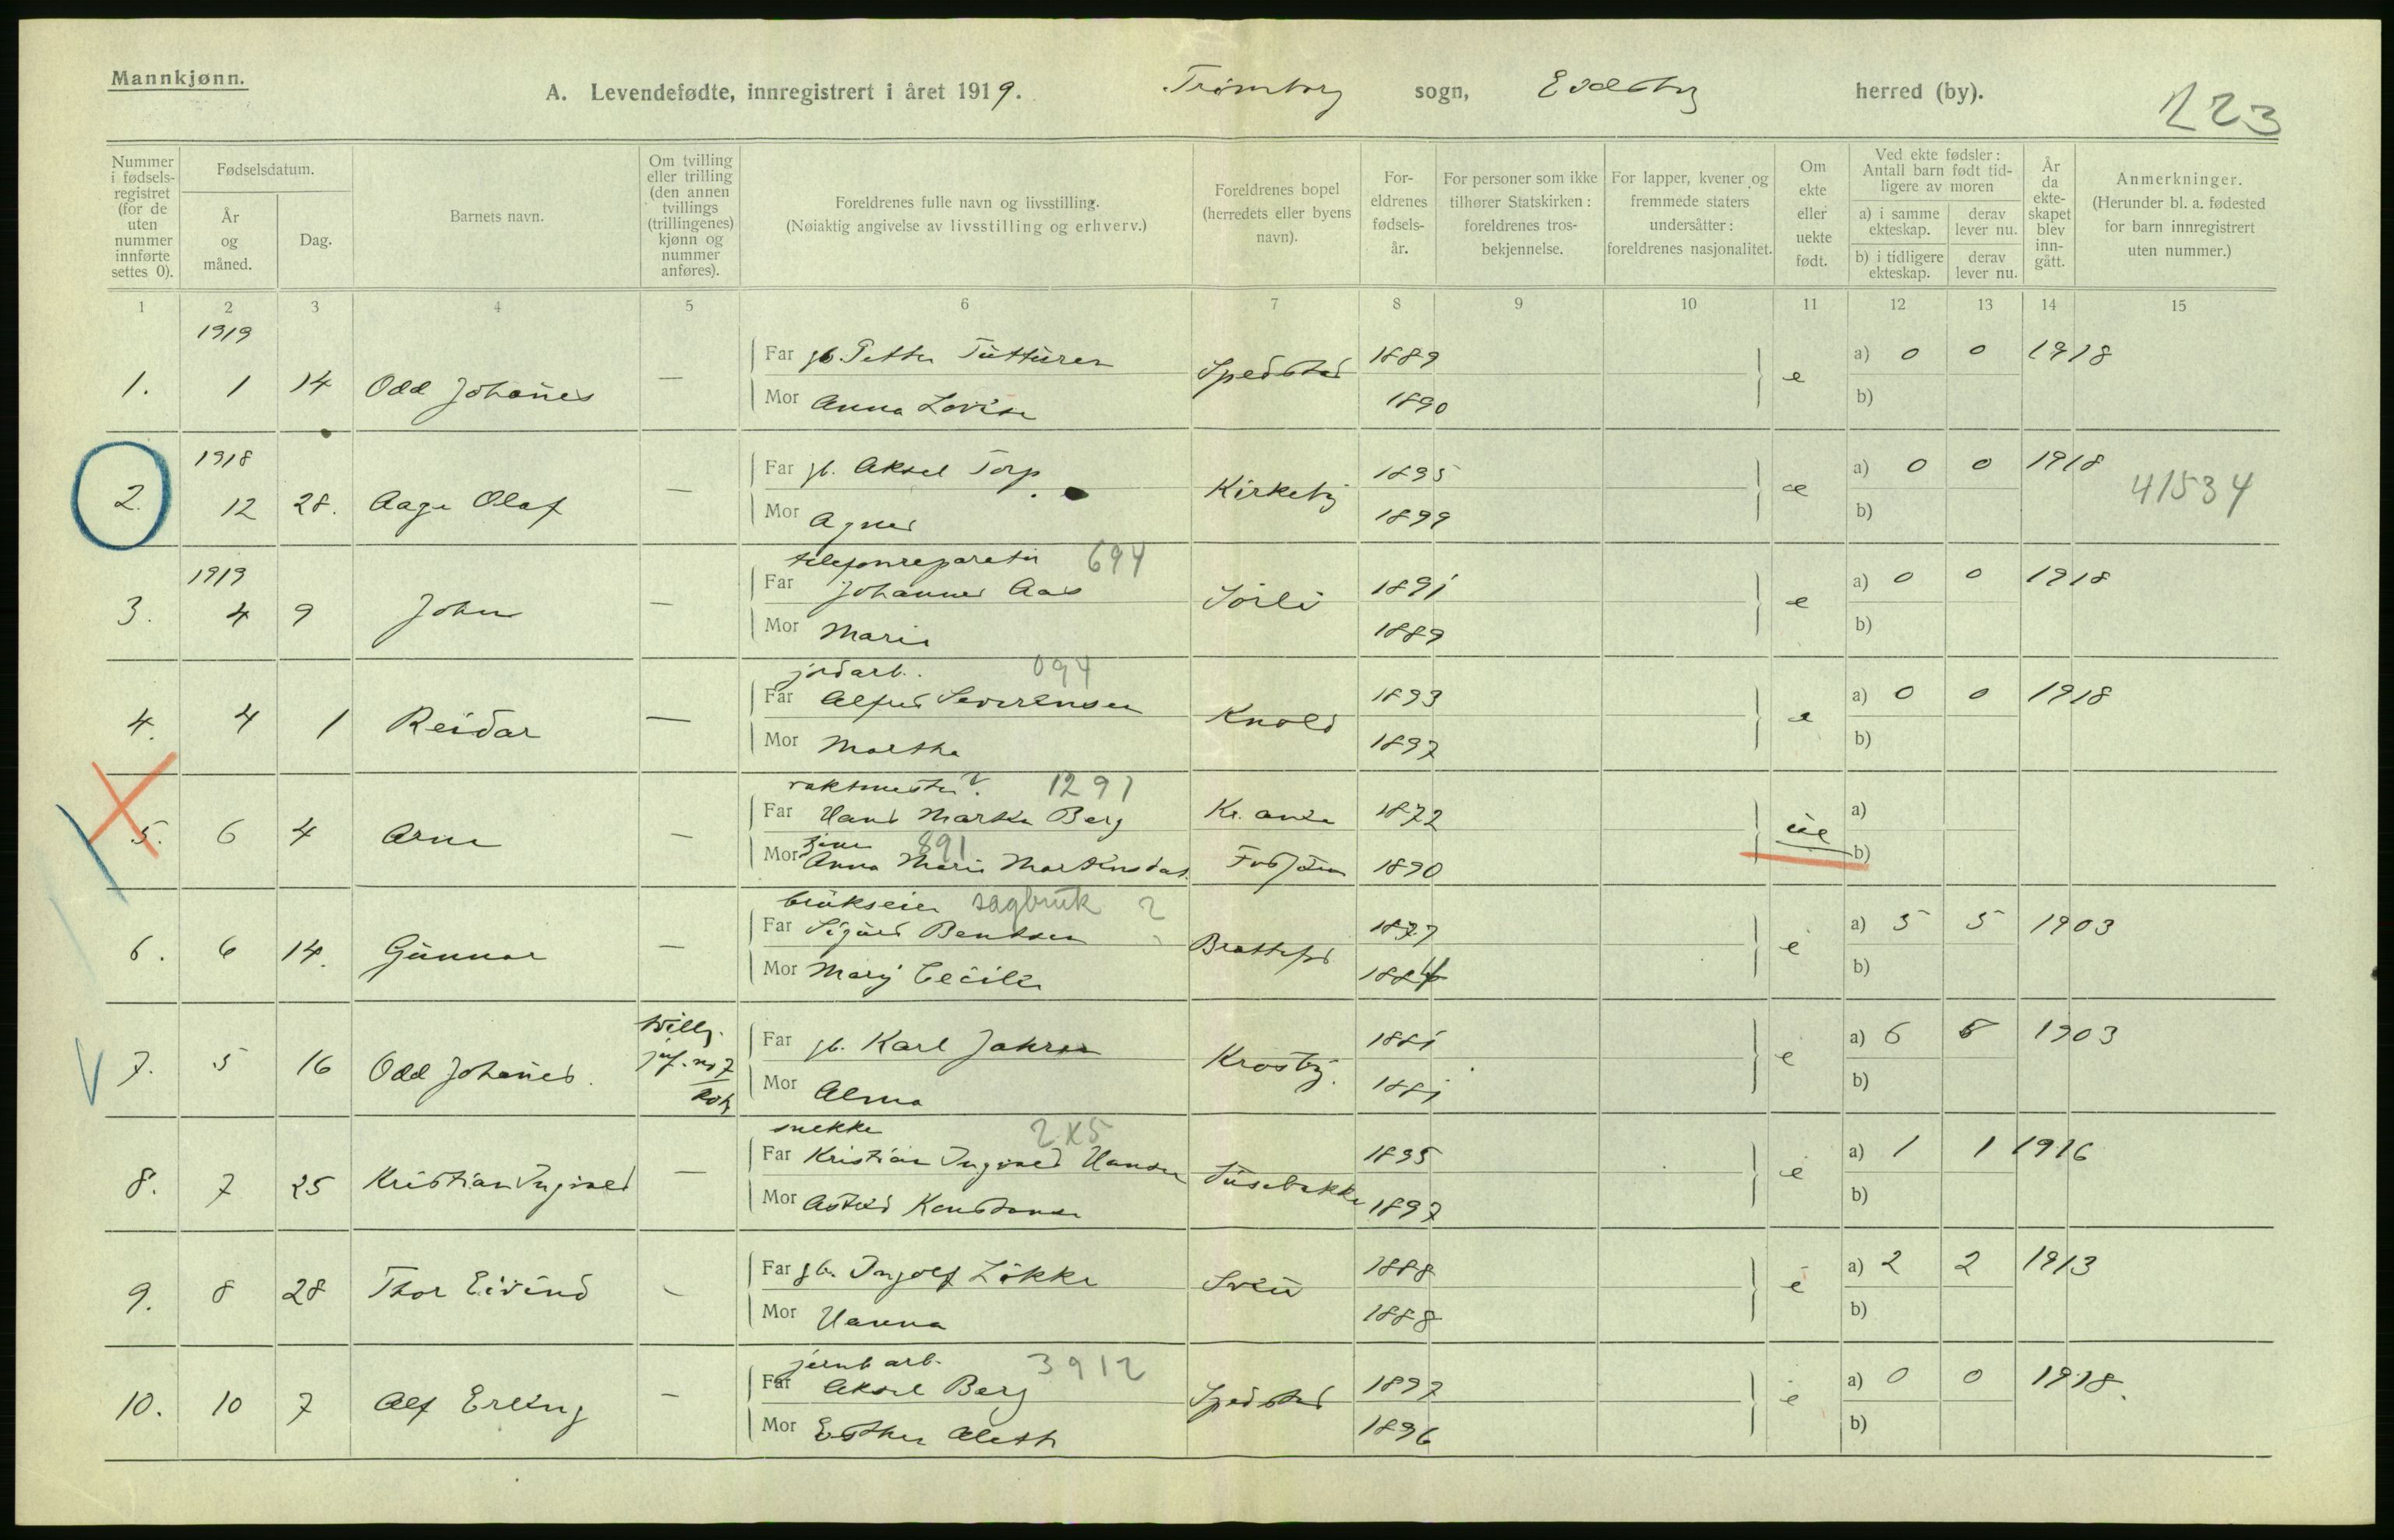 Mannkjønn.
A. Levendefødte, innregistrert i året 1919. Trømborg sogn, Eidsberg herred (by).
123
Nummer i fødsels-registret (for de uten nummer innførte settes 0).
Fødselsdatum.
År og måned.
Dag.
Barnets navn.
Om tvilling eller trilling (den annen tvillings (trillingenes) kjønn og nummer anføres).
Foreldrenes fulle navn og livsstilling.
(Nøiaktig angivelse av livsstilling og erhverv.)
Foreldrenes bopel (herredets eller byens navn).
For-eldrenes fødsels-år.
For personer som ikke tilhører Statskirken: foreldrenes tros-bekjennelse.
For lapper, kvener og fremmede staters undersåtter: foreldrenes nasjonalitet.
Om ekte eller uekte født.
Ved ekte fødsler: Antall barn født tid-ligere av moren
a) i samme ekteskap.
derav lever nu.
b) i tidligere ekteskap.
derav lever nu.
År da ekte-skapet blev inn-gått.
Anmerkninger.
(Herunder bl. a. fødested for barn innregistrert uten nummer.)
1 2 3 4 5 6 7 8 9 10 11 12 13 14 15
1919
1. 1 14 Odd Johanes — Far gb. Petter Tutturen Spedstad 1889 e a) 0 0 1918
Mor Anna Lovise 1890 b)
1918
2. 12 28. Aage Olaf — Far gb. Aksel Torp Kirkeby 1895 e a) 0 0 1918 41534
Mor Agnes 1899 b)
telefonreparatør 694
1919
3. 4 9 John — Far Johannes Aas Sørli 1891 e a) 0 0 1918
Mor Marie 1889 b)
jordarb. 094
4. 4 1 Reidar — Far Alfred Severensen Knold 1893 e a) 0 0 1918
Mor Martha 1897 b)
vaktmester v. 1291
5. 6 4 Arne — Far Hans Martin Berg Kr.ania 1872 ue a)
tjen 891
Mor Anna Marie Martinsdat. 1890 b)
brukseier sagbruk 2
6. 6 14. Gunnar — Far Sigurd Bentsen Brattfos 1877 e a) 5 5 1903
Mor Mary Cecilie 1884 b)
7. 5 16 Odd Johanes. tvill. jvf. no 7 Far gb. Karl Jahren Krosby. 1881 e a) 6 5 1903
Mor Alma 1881 b)
snekker 2X5
8. 7 25 Kristian Ingvald — Far Kristian Ingvald Hansen Tusebakke 1895 e a) 1 1 1916
Mor Astrid Konstanse 1897 b)
9. 8 28 Thor Eivind - Far gb. Ingolf Løkke Svein 1888 e a) 2 2 1913
Mor Hanna 1888 b)
jernb arb. 3912
10. 10 7 Alf Erling — Far Aksel Berg Spedstad 1897 e a) 0 0 1918.
Mor Esther Aleth 1896 b)